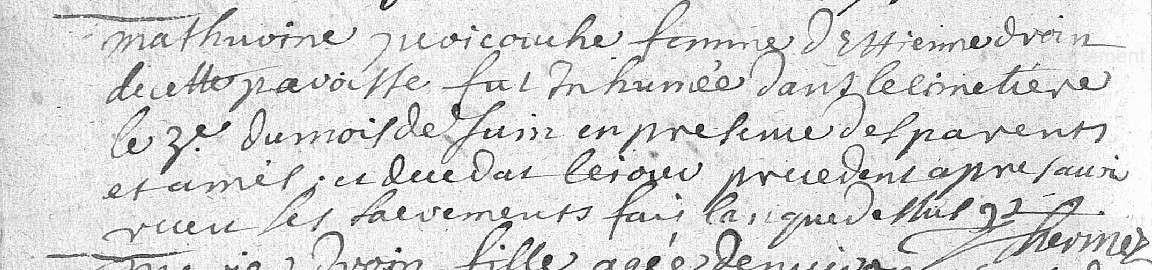 mathurine juoicouche femme d'Estienne drouin
de cette paroisse fut Inhumée dans le cimetiere
le 3e. du mois de Juin en presence des parents
et amis, et decedat le jour precedent apres avoir
receu ses sacrements fait lan que dessus
fille agée de